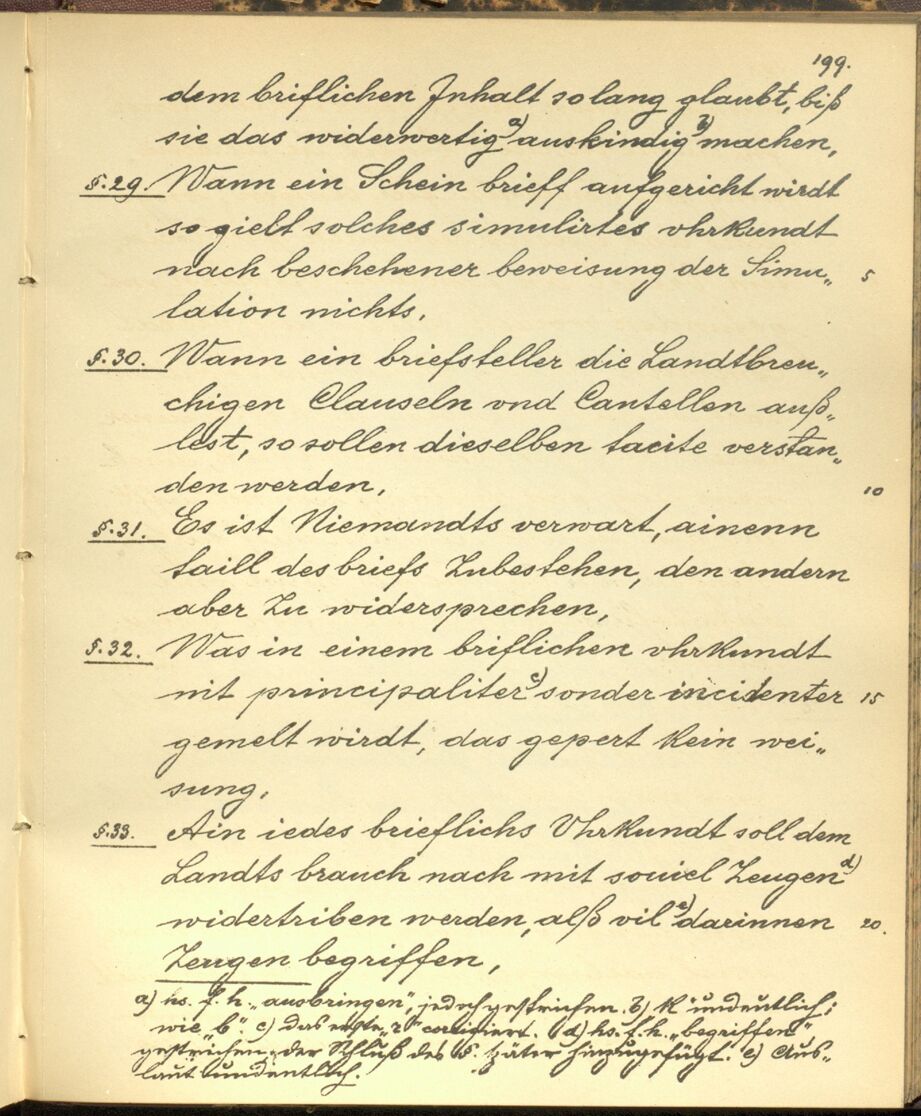 199.
dem briflichen Inhalt so lang glaubt, biß
sie das widerwertig a) auskindig b) machen,
§. 29. Wann ein Schein brieff aufgericht wirdt
so gielt solches simulirtes vhrkundt
nach beschehener beweisung der Simu„ 5
lation nichts,
§. 30. Wann ein briefsteller die Landtbreu„
chigen Clauseln vnd Cautellen auß„
lest, so sollen dieselben tacite verstan„
den werden, 10
§. 31. Es ist Niemandts verwart, ainenn
taill des briefs Zubestehen, den andern
aber Zu widersprechen,
§. 32. Was in einem briflichen vhrkundt
nit principaliter c) sonder incidenter 15
gemelt wirdt, das gepert kein wei„
sung,
§. 33. Ain iedes brieflichs Vhrkundt soll dem
Landts brauch nach mit souiel Zeugen d)
widertriben werden, alß vil e) darinnen 20.
Zeugen begriffen,
a) hs. f. h. „ausbringen", jedoch gestrichen. b) „k" undeutlich;
wie „b". c) Das erste „r" corrigiert. d) hs. f. h. „begriffen"
gestrichen, der Schluß des §. später hinzugefügt. e) Aus„
laut undeutlich.